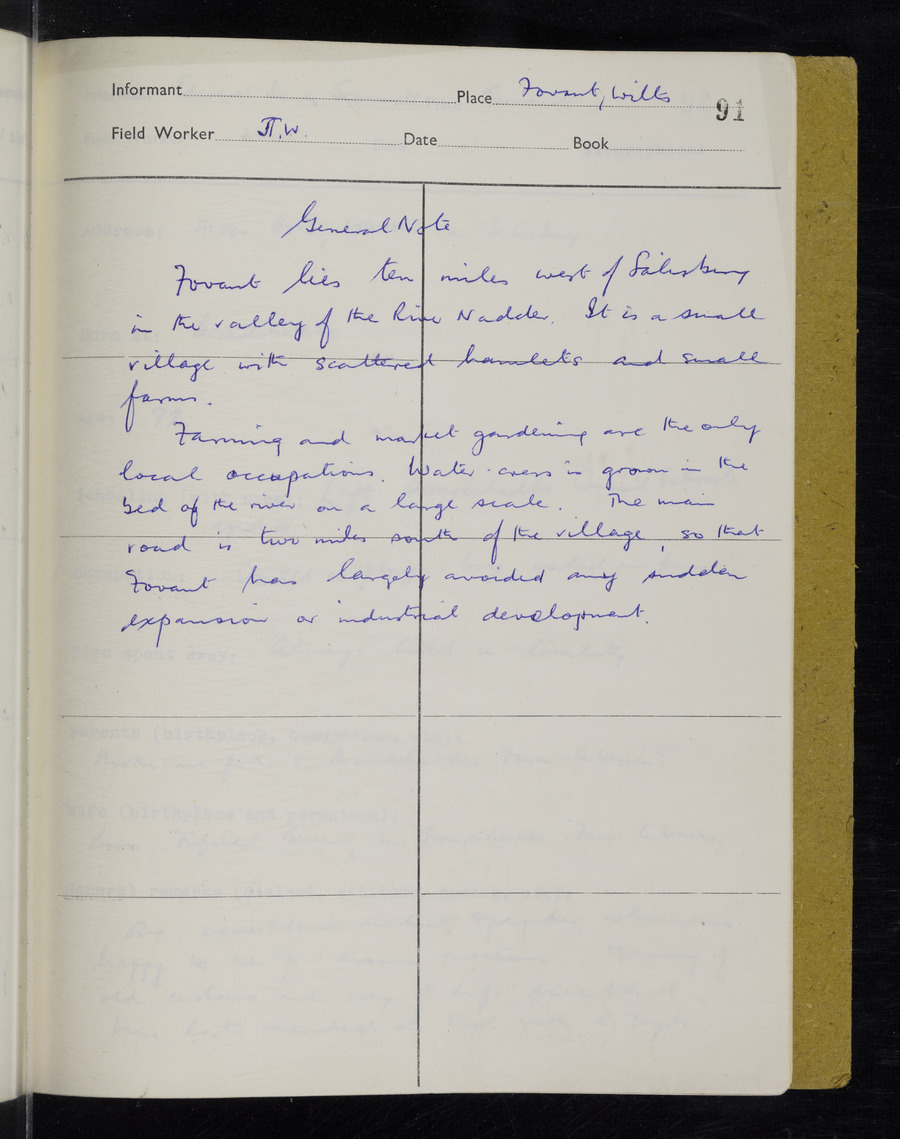 Informant Place Fovant, Wilts 91
Field Worker Π.W. Date Book
General Note
Fovant lies ten miles west of Salisbury
in the valley of the River Nadder. It is a small
village with scattered hamlets and small
farms.
Farming and market gardening are the only
local occupations. Water-cress is grown in the
bed of the river on a large scale. The main
road is two miles south of the village, so that
Fovant has largely avoided any sudden
expansion or industrial development.